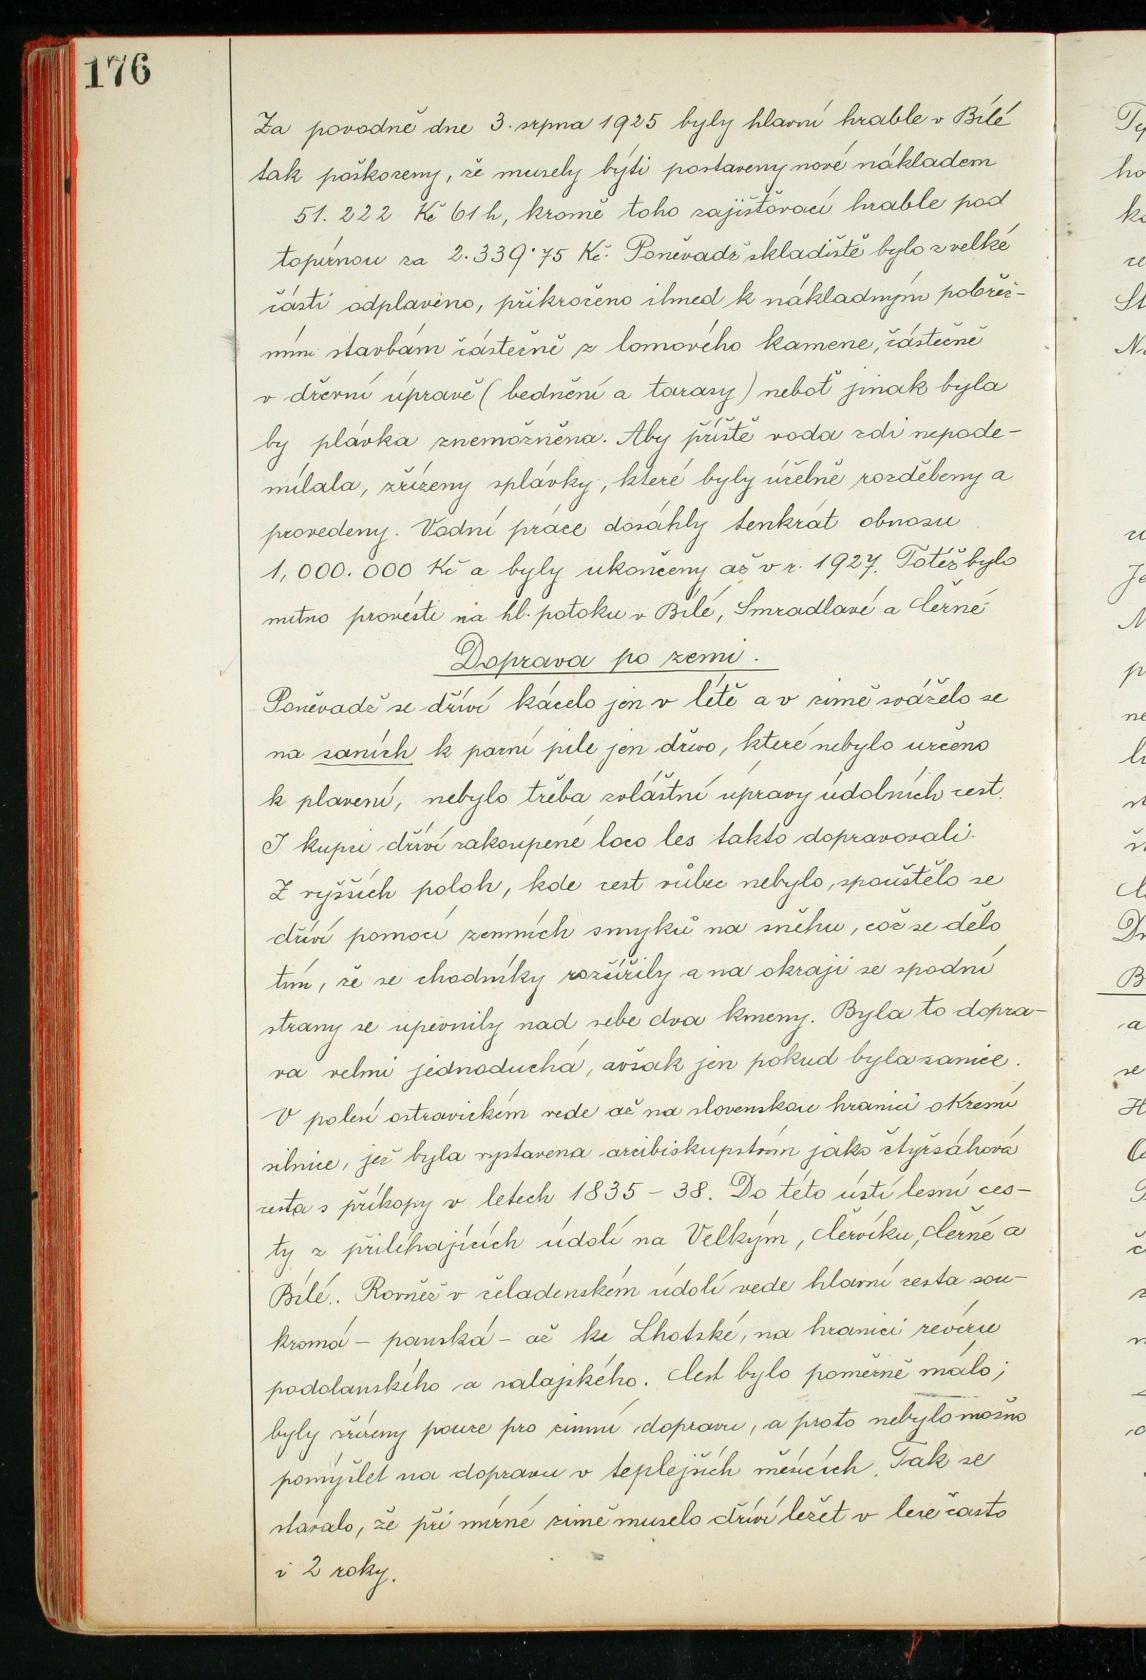 176
Za povodně dne 3. srpna 1925 byly hlavní hrable v Bílé
tak poškozeny, že musely býti postaveny nové nákladem
51.222 Kč 61 h, kromě toho zajišťovací hrable pod
topírnou za 2.339·75 Kč. Poněvadž skladiště bylo z velké
části odplaveno, přikročeno ihned k nákladným pobřež-
ním stavbám částečně z lomového kamene, částečně
v dřevní úpravě (bednění a tarasy) neboť jinak byla
by plávka znemožněna. Aby příště voda zdi nepode-
mílala, zřízeny splávky, které byly účelně rozděbeny a
provedeny. Vodní práce dosáhly tenkrát obnosu
1,000.000 Kč a byly ukončeny až v r. 1927. Totéž bylo
nutno provésti na hl. potoku v Bílé, Smradlavé a Černé
Doprava po zemi.
Poněvadž se dříví kácelo jen v létě a v zimě sváželo se
na saních k parní pile jen dřevo, které nebylo určeno
k plavení, nebylo třeba zvláštní úpravy údolních cest.
I kupci dříví zakoupené loco les takto dopravovali.
Z vyšších poloh, kde cest vůbec nebylo, spouštělo se
dříví pomocí zemních smyků na sněhu, což se dělo
tím, že se chodníky rozšířily a na okraji se spodní
strany se upevnily nad sebe dva kmeny. Byla to dopra-
va velmi jednoduchá, avšak jen pokud byla sanice.
V polesí ostravickém vede až na slovenskou hranici okresní
silnice, jež byla vystavena arcibiskupstvím jako čtyřsáhová
cesta s příkopy v letech 1835 - 38. Do této ústí lesní ces-
ty z přiléhajících údolí na Velkým, Červíku, Černé a
Bílé. Rovněž v čeladenském údolí vede hlavní cesta sou-
kromá - panská - až ke Lhotské, na hranici revíru
podolanského a salajského. Cest bylo poměrně málo;
byly zřízeny pouze pro zimní dopravu, a proto nebylo možno
pomýšlet na dopravu v teplejších měsících. Tak se
stávalo, že při mírné zimě muselo dříví ležet v lese často
i 2 roky.